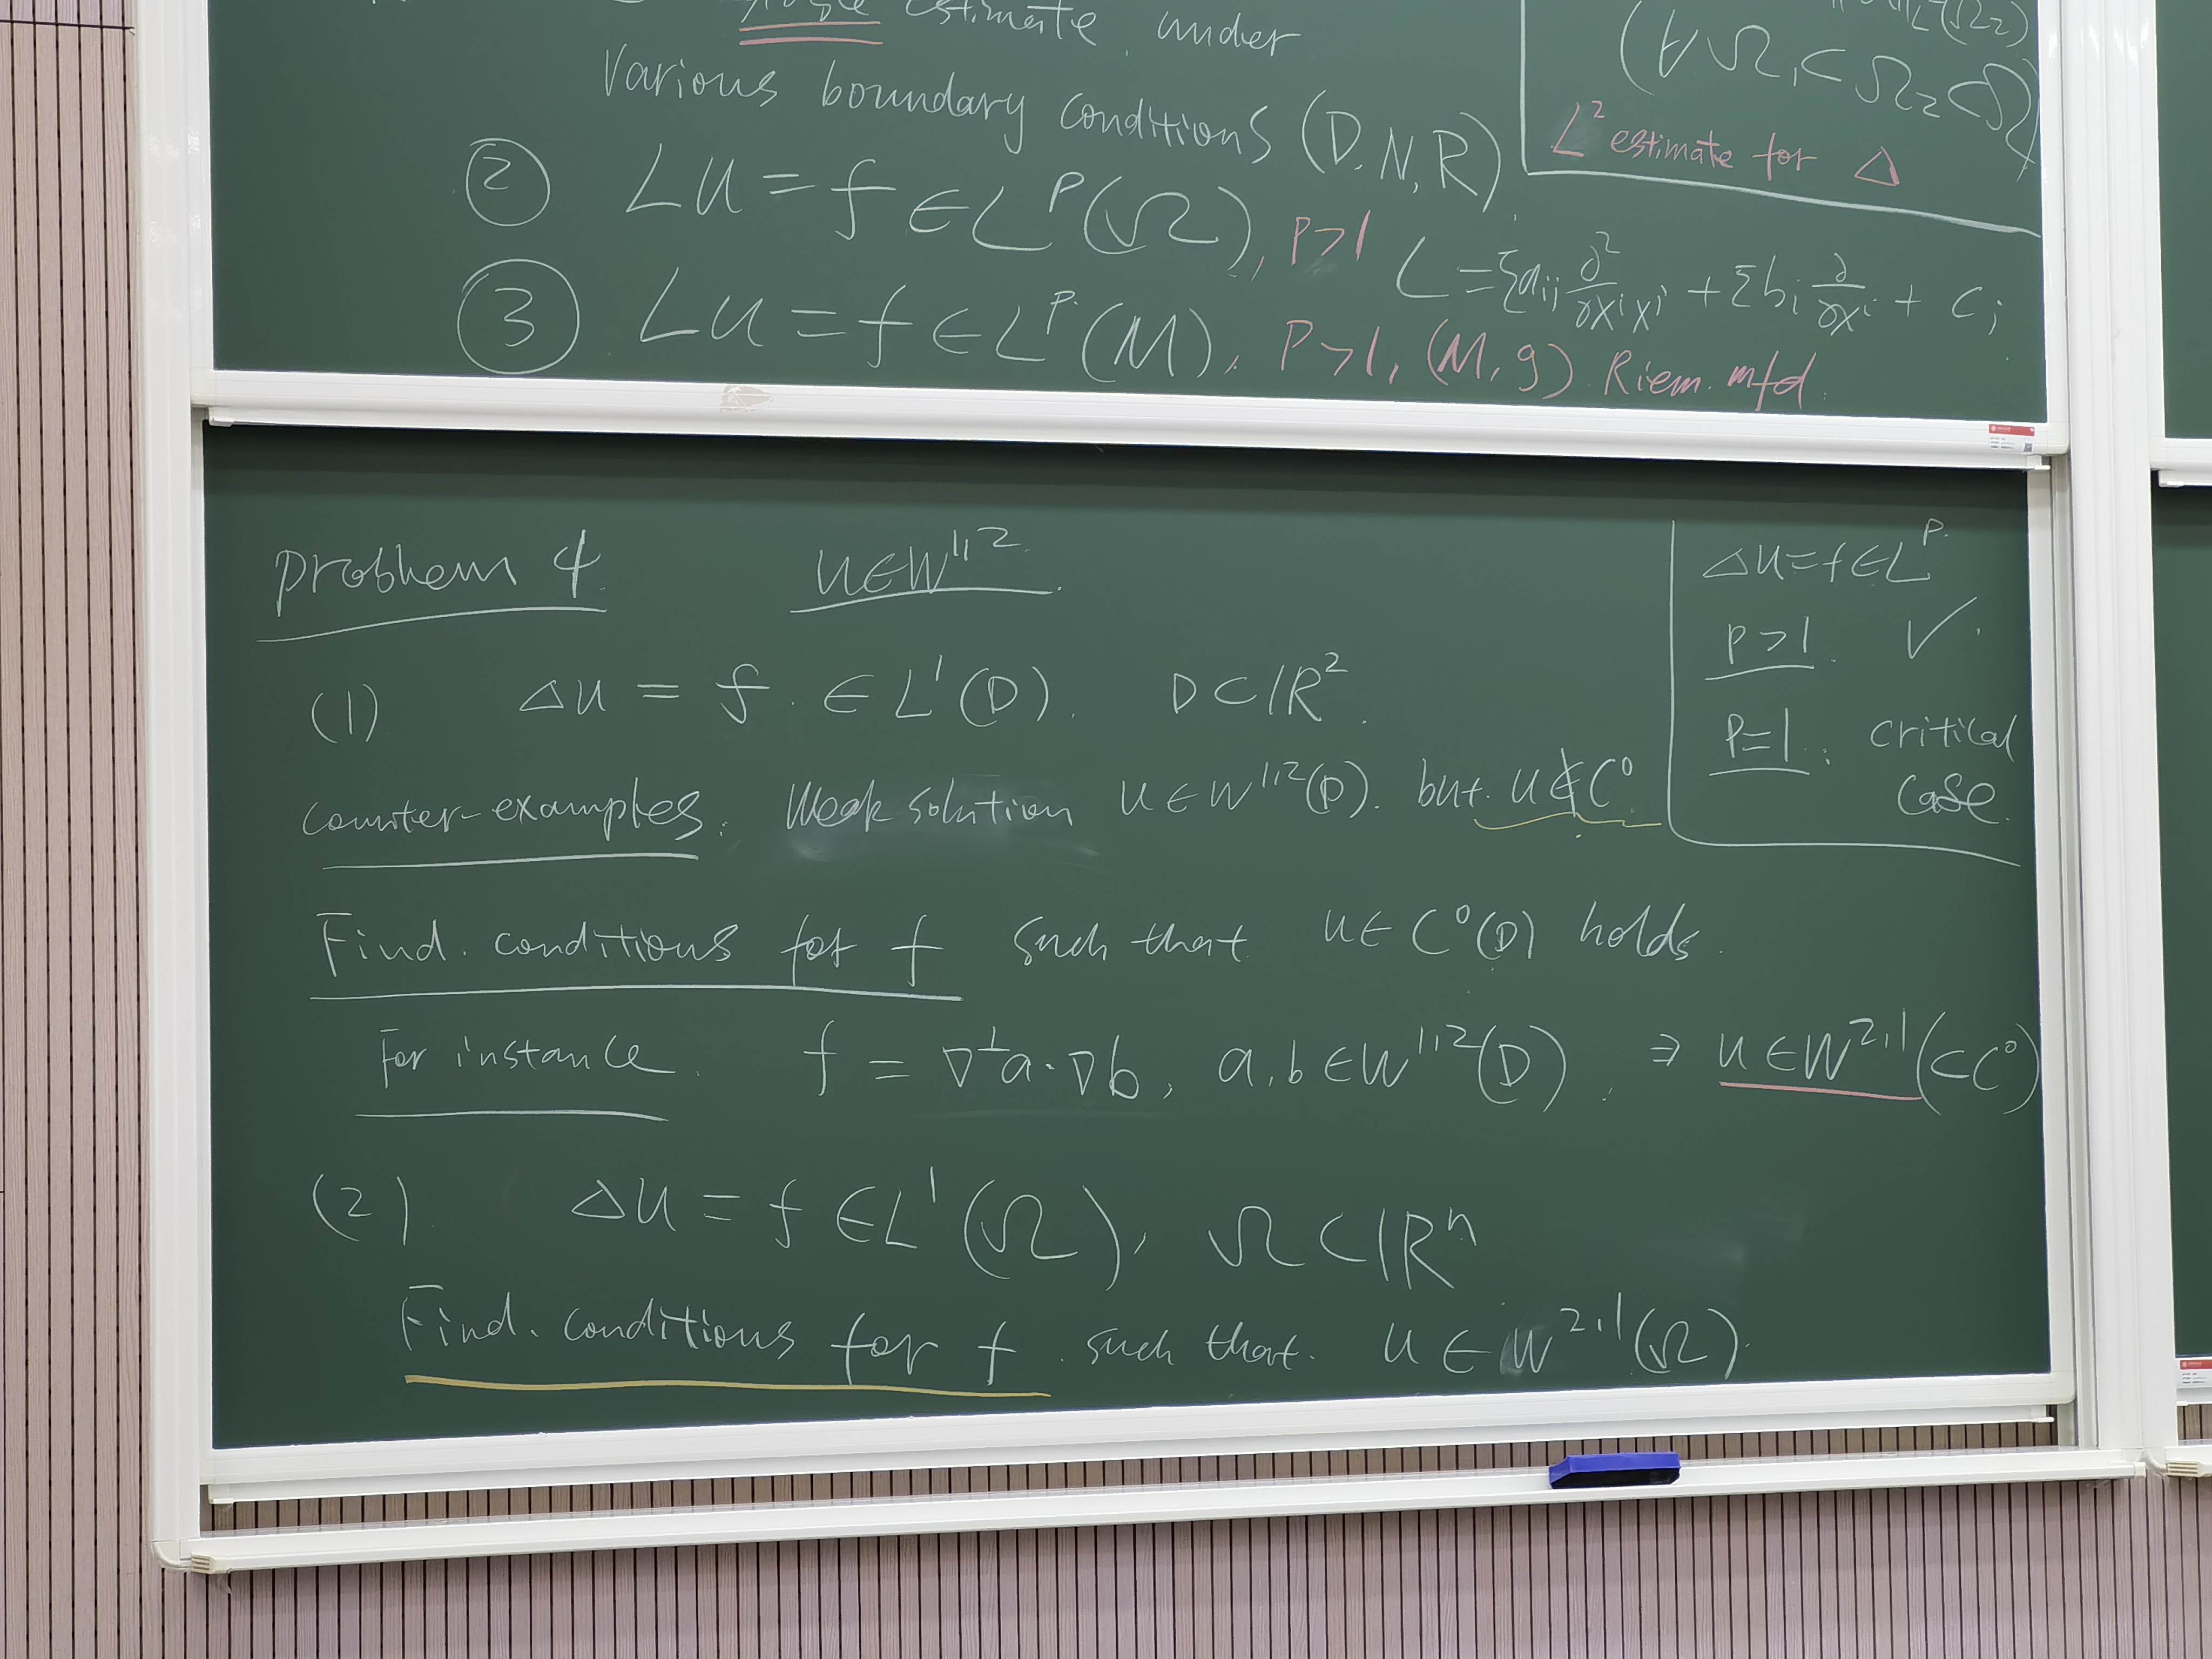 estimate under
Various boundary conditions (D, N, R)
(∀ Ω₁ ⊂ Ω₂ ⊂ Ω)
L² estimate for Δ
② Lu = f ∈ L^p(Ω), p>1 L = Σa_ij ∂²/∂x^i x^j + Σb_i ∂/∂x^i + C;
③ Lu = f ∈ L^p(M), P>1, (M, g) Riem. mfd.
Problem 4. u∈W^{1,2}.
(1) Δu = f. ∈ L¹(D). D⊂ℝ².
counter-examples: Weak solution u∈W^{1,2}(D). but. u∉C⁰
Δu=f∈L^p.
p>1. ✓.
p=1: critical
case.
Find. conditions for f such that u∈C⁰(D) holds.
For instance. f = ∇^⊥a·∇b, a,b∈W^{1,2}(D). ⇒ u∈W^{2,1}(⊂C⁰)
(2) Δu = f ∈L¹(Ω), Ω⊂ℝⁿ
Find. conditions for f such that. u ∈ W^{2,1}(Ω).